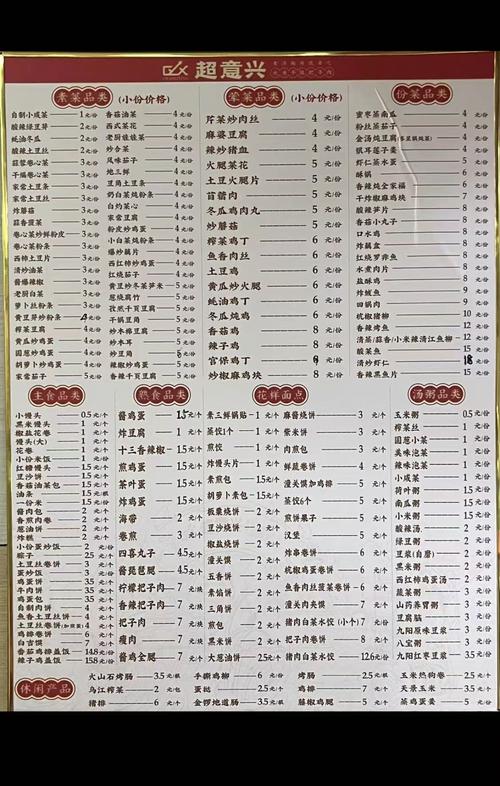 超意兴
素菜品类 (小份价格)
自制小咸菜 1元/份
酸辣绿豆芽 2元/份
蚝油冬瓜 2元/份
酸辣土豆丝 2元/份
蒜蓉卷心菜 3元/份
干煸卷心菜 3元/份
家常土豆片 3元/份
家常土豆丝 3元/份
炸蘑菇 3元/份
蒜香菠菜 3元/份
卷心菜炒鲜粉皮 3元/份
卷心菜炒粉条 3元/份
西柿土豆片 3元/份
清炒油菜 3元/份
酱爆辣椒 3元/份
老厨白菜 3元/份
萝卜丝粉条 3元/份
黄豆芽炒粉条 3元/份
榨菜豆腐 4元/份
黄瓜炒鸡蛋 4元/份
圆葱炒鸡蛋 4元/份
胡萝卜炒鸡蛋 4元/份
家常茄子 5元/份
香菇油菜 4元/份
西式菜花 4元/份
老厨娃娃菜 4元/份
炒合菜 4元/份
风味茄子 4元/份
地三鲜 4元/份
豆角土豆条 4元/份
奶白菜炖粉条 4元/份
白灼菜心 4元/份
家常豆腐 4元/份
粉皮炒鸡蛋 4元/份
小白菜炖粉条 4元/份
爆炒藕片 4元/份
西红柿炒鸡蛋 4元/份
红烧茄子 4元/份
黄豆炒冬菜笋米 5元/份
葱烧腐竹 5元/份
孜然干页豆腐 5元/份
干锅豆角 5元/份
炒本棒豆腐 5元/份
炒木耳 5元/份
炒豆角 元/份
辣椒炒鸡蛋 5元/份
香辣千页豆腐 5元/份
荤菜品类 (小份价格)
芹菜炒肉丝 4元/份
麻婆豆腐 4元/份
辣炒猪血 4元/份
火腿菜花 4元/份
土豆火腿片 4元/份
苜蓿肉 5元/份
冬瓜鸡肉丸 5元/份
炒蘑菇 5元/份
榨菜鸡丁 6元/份
鱼香肉丝 6元/份
土豆鸡 6元/份
黄瓜炒火腿 6元/份
蚝油鸡丁 6元/份
冬瓜炖鸡 6元/份
香菇鸡 8元/份
辣子鸡 8元/份
宫保鸡丁 元/份
炒椒麻鸡块 8元/份
份菜品类
蜜枣蒸南瓜 4元/份
粉丝蒸茄子 4元/份
金汤炖豆腐 4元/份
虾仁蒸水蛋 5元/份
酥锅 5元/份
香辣炖全家福 6元/份
干炸椒麻鸡块 7元/份
酸辣笋片 5元/份
香菇小丸子 5元/份
口水鸡 8元/份
炸藕盒 8元/份
红烧罗非鱼 8元/份
水煮肉片 8元/份
盐酥鸡 8元/份
炸鱿鱼 9元/份
回锅肉 9元/份
杭椒猪柳 10元/份
香辣烤鱼 12元/份
清蒸/蒜香/小米辣清江鱼柳 12元/份
酸菜鱼 15元/份
清炒虾仁 元/份
香辣黑鱼片 15元/份
主食品类
小馒头 0.5元/个
黑米馒头 1元/个
椒盐花卷 1元/个
馒头(大) 1元/个
花卷 1元/个
小份米饭 1元/份
红糖馒头 1.5元/个
豆沙饼 1.5元/个
香菇油菜包 1.5元/个
油条 1.5元/根
一份米 1.5元/份
酱肉包 2元/个
香煎肉卷 2元/个
葱油饼 2元/个
炸糕 2元/个
小份蛋炒饭 2元/份
粽子 2.5元/个
土豆丝卷饼 2.5元/个
鸡蛋饼 3.5元/个
牛肉饼 3.5元/个
鸡蛋包 3.5元/个
自制肉饼 4元/个
鱼香土豆丝饼 4元/个
鸡排卷饼 6元/个
白吉馍 7元/个
番茄鸡鸡盖饭 14.8元/份
辣子鸡盖饭 15.8元/份
熟食品类
酱鸡蛋 1.5元/个
炸豆腐 2元/个
十三香辣椒 1.5元/个
煎鸡蛋 2元/个
茶叶蛋 2元/个
炸鸡蛋 2元/个
海带 2元/个
卷煎 3元/个
四喜丸子 4.5元/个
酱琵琶腿 4.5元/个
柠檬把子肉 7元/块
香辣把子肉 7元/块
把子肉 7元/块
瘦肉 7元/块
酱鸡全腿 7元/个
花鲜面点
素三鲜锅贴 1元/个
蒸饺1个 1元/个
煎饺 1元/个
炸馒头片 1元/个
素煎包 1.5元/个
胡萝卜素包 1.5元/个
板栗烧饼 2元/个
豆沙烧饼 2元/个
椒盐烧饼 2元/个
潼关馍 2元/个
五香饼 2元/个
素馅饼 2元/个
三角饼 2元/个
肉煎包 2元/个
大葱油饼 2.5元/个
麻酱烧饼 3元/个
紫米饼 3元/个
肉煎包 3元/个
鲜蔬卷饼 3元/个
潼关馍加鸡蛋 5元/个
蒸饺6个 5元/份
煎饼果子 5元/个
汉堡 5元/个
炸串卷饼 6元/个
杭椒鸡蛋卷饼 6元/个
鱼香肉丝菜卷饼 6元/个
潼关肉夹馍 7元/个
猪肉白菜水饺(小个) 7元/份
把子肉卷饼 8元/个
猪肉白菜水饺 12.6元/份
汤粥品类
玉米粥 0.5元/份
榨菜丝 1元/份
圆葱小菜 1元/份
美味泡菜 1元/份
辣味泡菜 1元/份
小咸菜 1元/份
荷叶粥 1.5元/份
南瓜粥 1.5元/份
小米粥 1.5元/份
酸辣汤 2元/份
绿豆粥 2元/份
豆浆(自磨) 2元/份
黑米粥 2元/份
西红柿鸡蛋汤 2元/份
蔬菜粥 2元/份
山药养胃粥 3元/份
豆腐脑 3元/份
九阳原味豆浆 3元/份
八宝粥 3元/份
九阳红枣豆浆 3.5元/份
休闲产品
火山石烤肠 3.5元/根
乌江榨菜 2元/包
猪排 6元/个
手撕鸡柳 6元/份
蛋挞 2.5元/个
金锣地道肠 3.5元/根
烤肠 2.5元/根
鸡排 4元/个
藤椒鸡腿 5元/个
玉米热狗卷 2元/个
天景玉米 3.5元/个
茶鸡蛋黄 5元/个